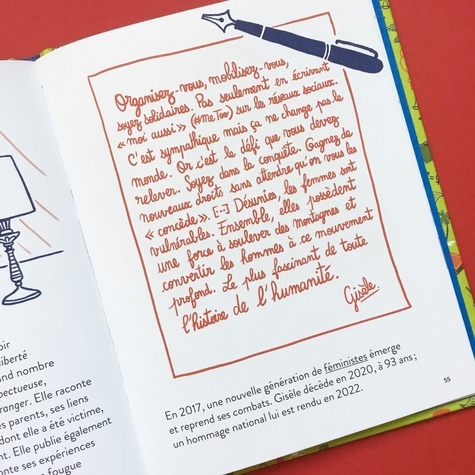 Organisez-vous, mobilisez-vous,
soyez solidaires. Pas seulement en écrivant
« moi aussi » (#MeToo) sur les réseaux sociaux.
C'est sympathique mais ça ne change pas le
monde. Or c'est le défi que vous devez
relever. Soyez dans la conquête. Gagnez de
nouveaux droits sans attendre qu'on vous les
« concède ». [...] Désunies, les femmes sont
vulnérables. Ensemble, elles possèdent
une force à soulever des montagnes et
convertir les hommes à ce mouvement
profond. Le plus fascinant de toute
l'histoire de l'humanité.
Gisèle.
En 2017, une nouvelle génération de féministes émerge
et reprend ses combats. Gisèle décède en 2020, à 93 ans ;
un hommage national lui est rendu en 2022.
55
oir
liberté
and nombre
pectueuse,
ranger. Elle raconte
es parents, ses liens
dont elle a été victime,
al. Elle publie également
nte ses expériences
fougue